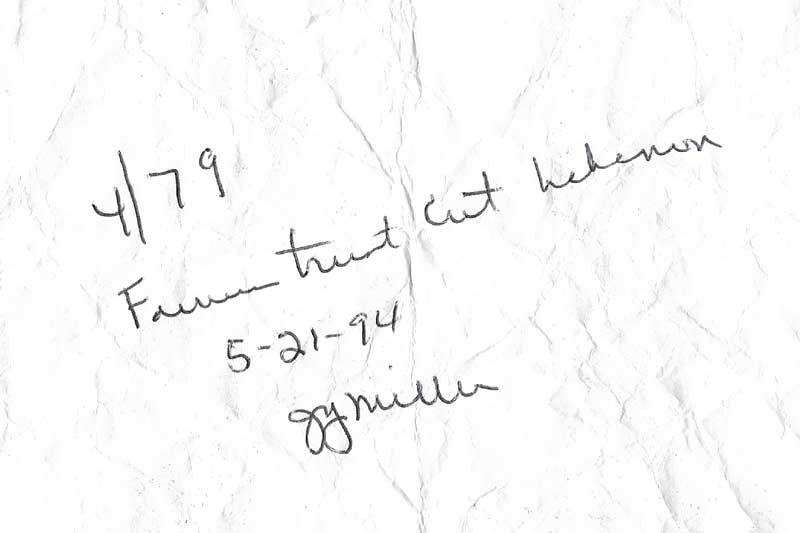 4/79
Farmers trust Lebanon
5-21-94
JY Miller